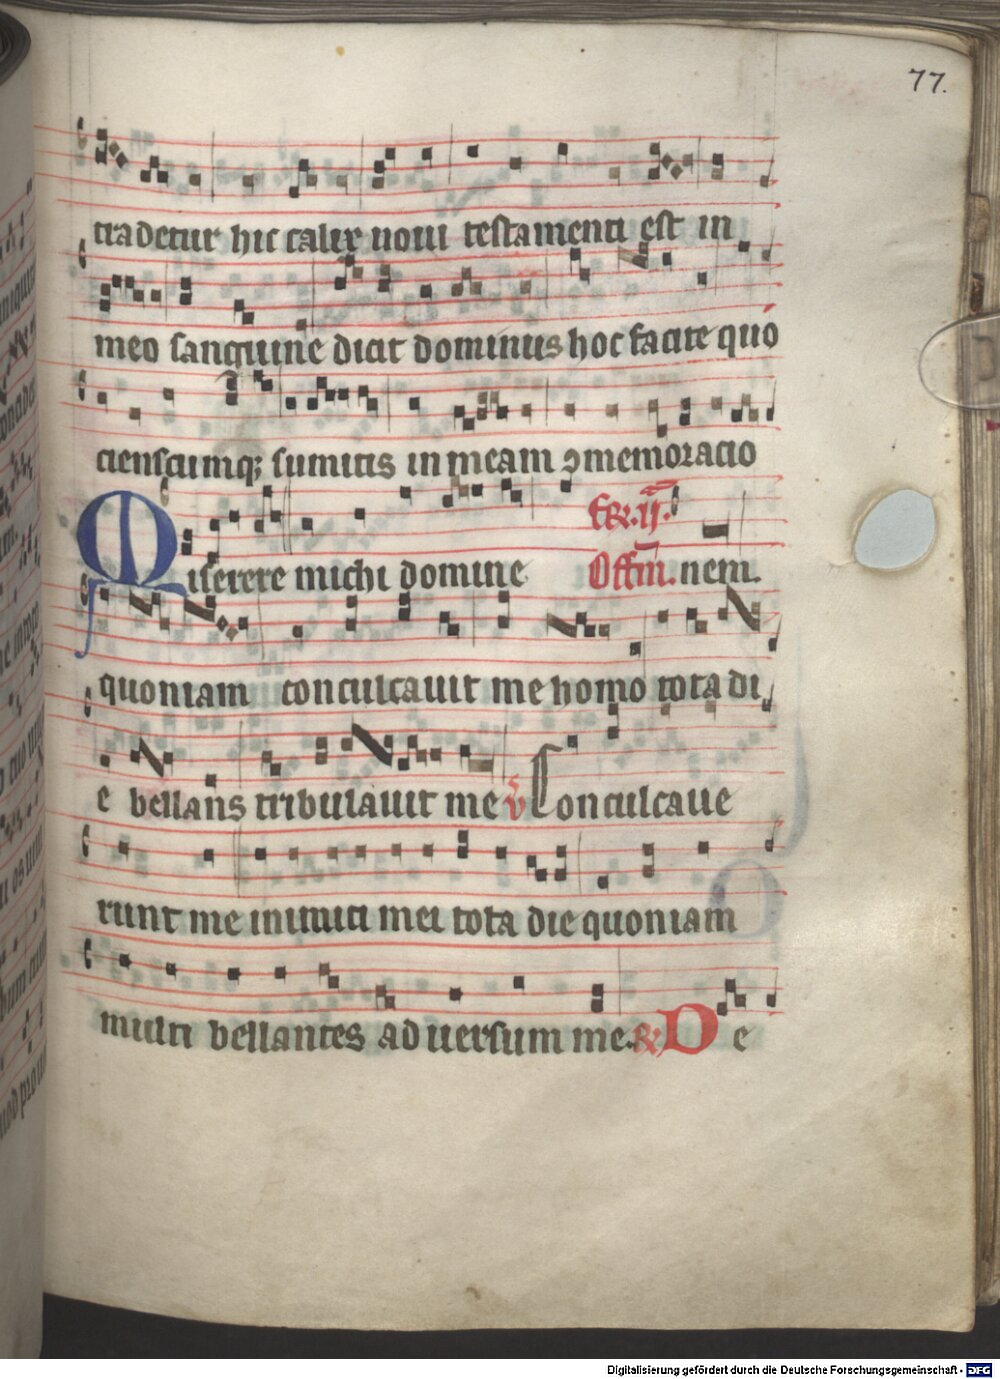 77.
tradetur hic calix noui testamenti est in
meo sanguine dicit dominus hoc facite quo
cienscumq; sumitis in meam ꝯmemoracio
Miserere michi domine Fer. ij. Offm̄. nem.
quoniam conculcauit me homo tota di
e bellans tribulauit me v Conculcaue
runt me inimici mei tota die quoniam
multi bellantes aduersum me. De
Digitalisierung gefördert durch die Deutsche Forschungsgemeinschaft - DFG